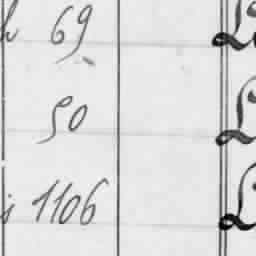 h 69 L
50 L
i 1106 L